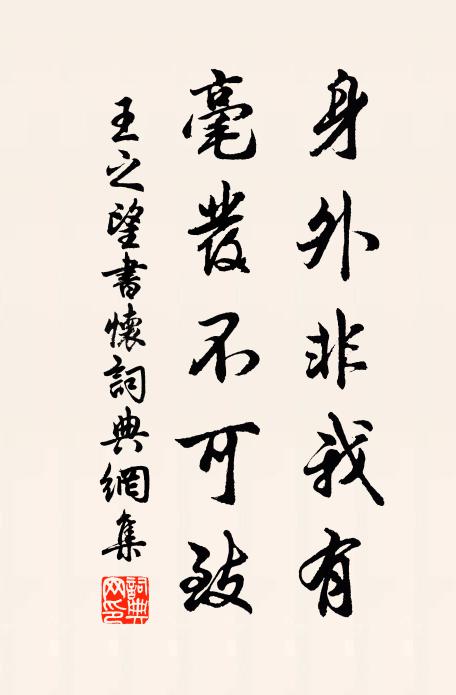 身外非我有
毫發不可致
王之望書懷詞典網集
詞典網印